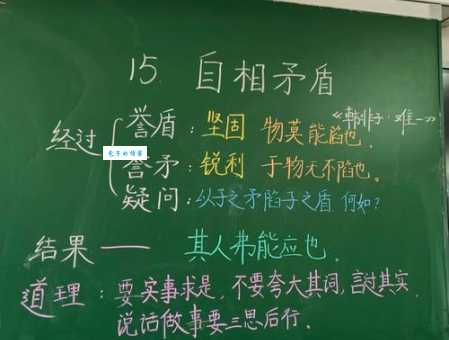 15 自相矛盾
《韩非子·难一》
经过
誉盾：坚固 物莫能陷也。
誉矛：锐利 于物无不陷也。
疑问：以子之矛陷子之盾，何如？
结果—— 其人弗能应也。
道理：要实事求是，不要夸大其词，言过其实，
说话做事要三思后行。